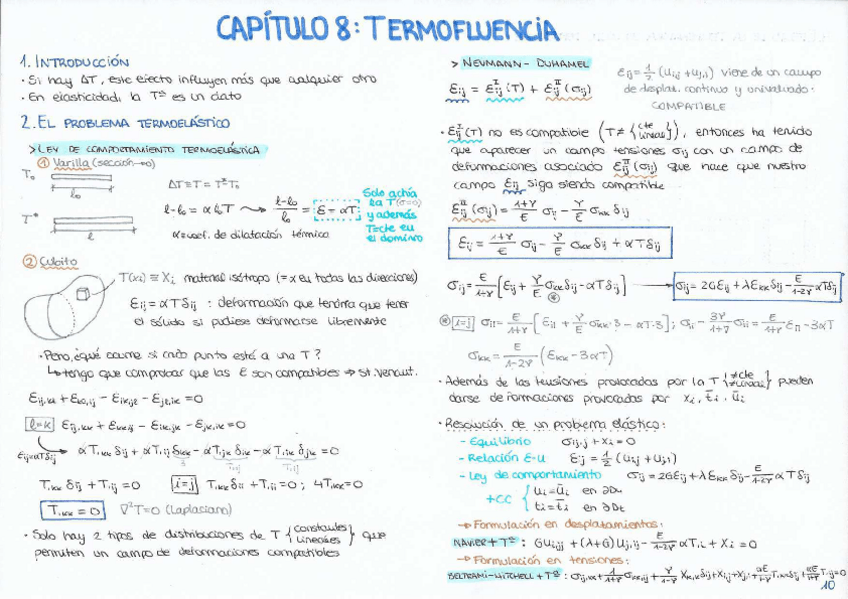 CAPÍTULO 8: TERMOFLUENCIA
1. INTRODUCCIÓN
· Si hay ΔT, este efecto influyen más que cualquier otro
· En elasticidad, la Tª es un dato
2. EL PROBLEMA TERMOELÁSTICO
> LEY DE COMPORTAMIENTO TERMOELÁSTICA
① Varilla (sección→0)
T₀
l₀
ΔT ≡ T = T*-T₀
T*
l
l-l₀ = α l₀T → (l-l₀)/l₀ = ε = αT
Solo actúa
la T (σ=0)
y además
T=cte en
el dominio
α=coef. de dilatación térmica
② Cubito
T(xi) ≡ Xi material isótropo (= α en todas las direcciones)
εij = αTδij : deformación que tendría que tener
el sólido si pudiese deformarse libremente
· Pero, ¿qué ocurre si cada punto está a una T?
↳ tengo que comprobar que las ε son compatibles ⇒ St. Venant.
εij,kl + εkl,ij - εik,jl - εjl,ik = 0
l=k εij,kk + εkk,ij - εik,jk - εjk,ik = 0
εij=αTδij
αT,kk δij + αT,ij δkk - αT,jk δik - αT,ik δjk = 0
3 T,ij T,ij
T,kk δij + T,ij = 0 i=j T,kk δii + T,ii = 0 ; 4T,kk = 0
T,kk = 0 ∇²T=0 (Laplaciano)
· Solo hay 2 tipos de distribuciones de T {constantes / lineales} que
permiten un campo de deformaciones compatibles
> NEUMANN - DUHAMEL
εij = εᴵij (T) + εᴵᴵij (σij)
εij = 1/2 (ui,j + uj,i) viene de un campo
de desplaz. continuo y univaluado:
COMPATIBLE
· εᴵij(T) no es compatible (T ≠ {cte / lineal}), entonces ha tenido
que aparecer un campo tensiones σij con un campo de
deformaciones asociado εᴵᴵij(σij) que hace que nuestro
campo εij siga siendo compatible
εᴵᴵij (σij) = (1+γ)/E σij - γ/E σkk δij
εij = (1+γ)/E σij - γ/E σkk δij + αTδij
σij = E/(1+γ) [εij + γ/E σkk δij - αTδij] → σij = 2Gεij + λεkk δij - E/(1-2γ) αTδij
⊛ i=j σii = E/(1+γ) [εii + γ/E σkk·3 - αT·3] ; σii - 3γ/(1+γ) σii = E/(1+γ) εii - 3αT
σkk = E/(1-2γ) (εkk - 3αT)
· Además de las tensiones provocadas por la T {≠cte / ≠lineal} pueden
darse deformaciones provocadas por xi, t̄i, ūi
· Resolución de un problema elástico:
- Equilibrio σij,j + xi = 0
- Relación ε-u εij = 1/2 (ui,j + uj,i)
- Ley de comportamiento σij = 2Gεij + λεkk δij - E/(1-2γ) αTδij
+CC { ui = ūi en ∂Du
ti = t̄i en ∂Dt
→ Formulación en desplazamientos:
NAVIER + Tª : Gui,jj + (λ+G)uj,ji - E/(1-2γ) αT,i + Xi = 0
→ Formulación en tensiones:
BELTRAMI-MITCHELL + Tª : σij,kk + 1/(1+γ) σkk,ij + γ/(1-γ) Xk,k δij + Xi,j + Xj,i + αE/(1-γ) T,kk δij + αE/(1+γ) T,ij = 0
10